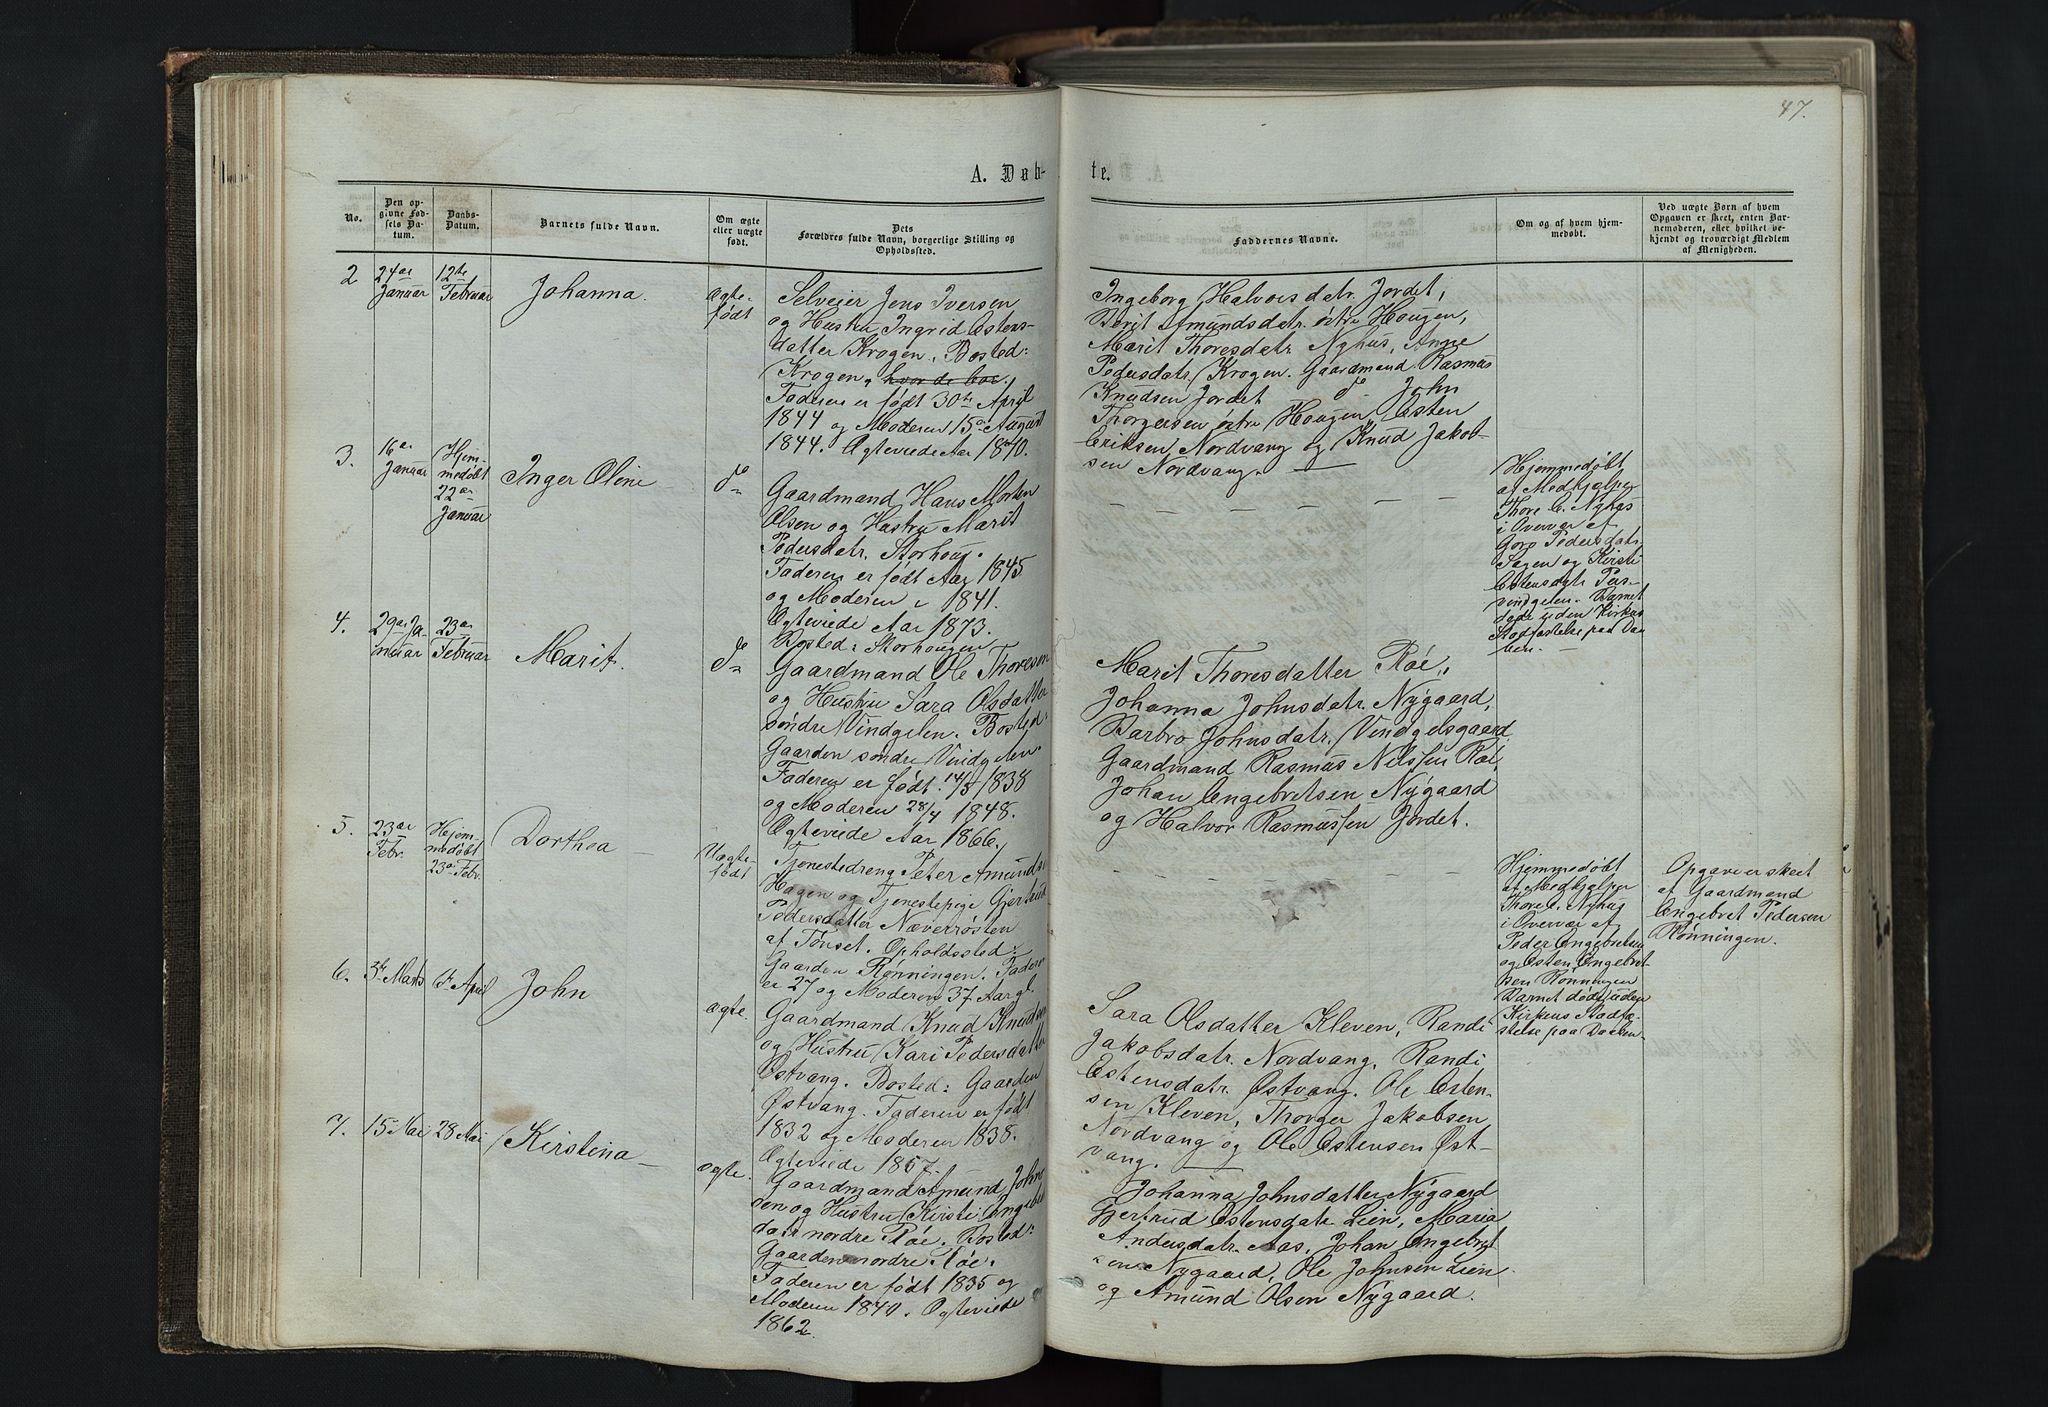 47.
A. Døb-
te.
No.
Den op-
givne Fød-
sels Da-
tum.
Daabs-
Datum.
Barnets fulde Navn.
Om ægte
eller uægte
født.
Dets
Forældres fulde Navn, borgerlige Stilling og
Opholdssted.
Faddernes Navne.
Om og af hvem hjem-
medøbt.
Ved uægte Børn af hvem
Opgaven er skeet, enten Bar-
nemoderen, eller hvilket be-
kjendt og troværdigt Medlem
af Menigheden.
2
24de
Januar
12te
Februar
Johanna.
Ægte-
født
Selveier Jens Iversen
og Hustru Ingrid Estens-
datter Krogen. Bosted:
Krogen, hvor de bor.
Faderen er født 30te April
1844 og Moderen 15de August
1844. Ægteviede Aar 1870.
Ingeborg Halvorsdatr. Jordet,
Berit Amundsdatr. östre Hougen,
Marit Thoresdatr. Nyhus, Anne
Pedersdatr. Krogen. Gaardmand Rasmus
Knudsen Jordet do John
Thorgersen östre Hougen, Esten
Eriksen Nordvang og Knud Jakob-
sen Nordvang.
3.
16de
Januar
Hjem-
medøbt
22de
Januar
Inger Oline
do
Gaardmand Hans Morten
Olsen og Hustru Marit
Pedersdatr. Storhoug.
Faderen er født Aar 1845
og Moderen " 1841.
Ægteviede Aar 1873.
Bosted: Storhougen
Hjemmedøbt
af Medhjælper
Thore E. Nyhus
i Overvær af
Goro Pedersdatr.
Fagen og Kirsti
Estensdatr.
Vindgelen. Barnet
døde uden Kirkens
Stadfæstelse paa Daa
ben.
4.
29de Ja-
nuar
23de
Februar
Marit.
do
Gaardmand Ole Thoresen
og Hustru Sara Olsdatter
söndre Vindgelen. Bosted:
Gaarden söndre Vindgelen.
Faderen er født 14/8 1838
og Moderen 28/4 1848.
Ægteviede Aar 1866.
Marit Thoresdatter Röe,
Johanna Johnsdatr. Nygaard,
Barbro Johnsdatr. Vindgelsgaard
Gaardmand Rasmus Nilssen Röe,
Johan Engebretsen Nygaard
og Halvor Rasmussen Jordet.
5.
23de
Febr.
Hjem-
medøbt
23de Febr.
Dorthea
Uægte-
født
Tjenestedreng Peter Amunds.
Hagen og Tjenestepige Gjertrud
Pedersdatter Næverrösten
af Tönset. Opholdssted:
Gaarden Rönningen. Faderen
er 27 og Moderen 37 Aar gl.
Hjemmedøbt
af Medhjælper
Thore E. Nyhus
i Overvær af
Peder Engebretsen
og Esten Engebret-
sen Rönningen
Barnet døde uden
Kirkens Stadfæ-
stelse paa Daaben.
Opgaven er skeet
af Gaardmand
Engebret Pedersen
Rönningen.
6.
3de Marts
6te April
John
ægte.
Gaardmand Knud Knudsen
og Hustru Kari Pedersdatter
Östvang. Bosted: Gaarden
Östvang. Faderen er født
1832 og Moderen 1838.
Ægteviede 1857.
Sara Olsdatter Kleven, Randi
Jakobsdatr. Nordvang, Randi
Estensdatr. Östvang. Ole Esten-
sen Kleven, Thorger Jakobsen
Nordvang og Ole Estensen Öst-
vang.
7.
15de Mai
28 Mai
Kirstina
ægte.
Gaardmand Amund John-
sen og Hustru Kirsti Engebrets
datr. nordre Röe. Bosted:
Gaarden nordre Röe.
Faderen er født 1835 og
Moderen 1840. Ægteviede
1862.
Johanna Johnsdatter Nygaard
Gjertrud Estensdatr. Lien, Maria
Andersdatr. Aas, Johan Engebret
sen Nygaard, Ole Johnsen Lien
og Amund Olsen Nygaard.